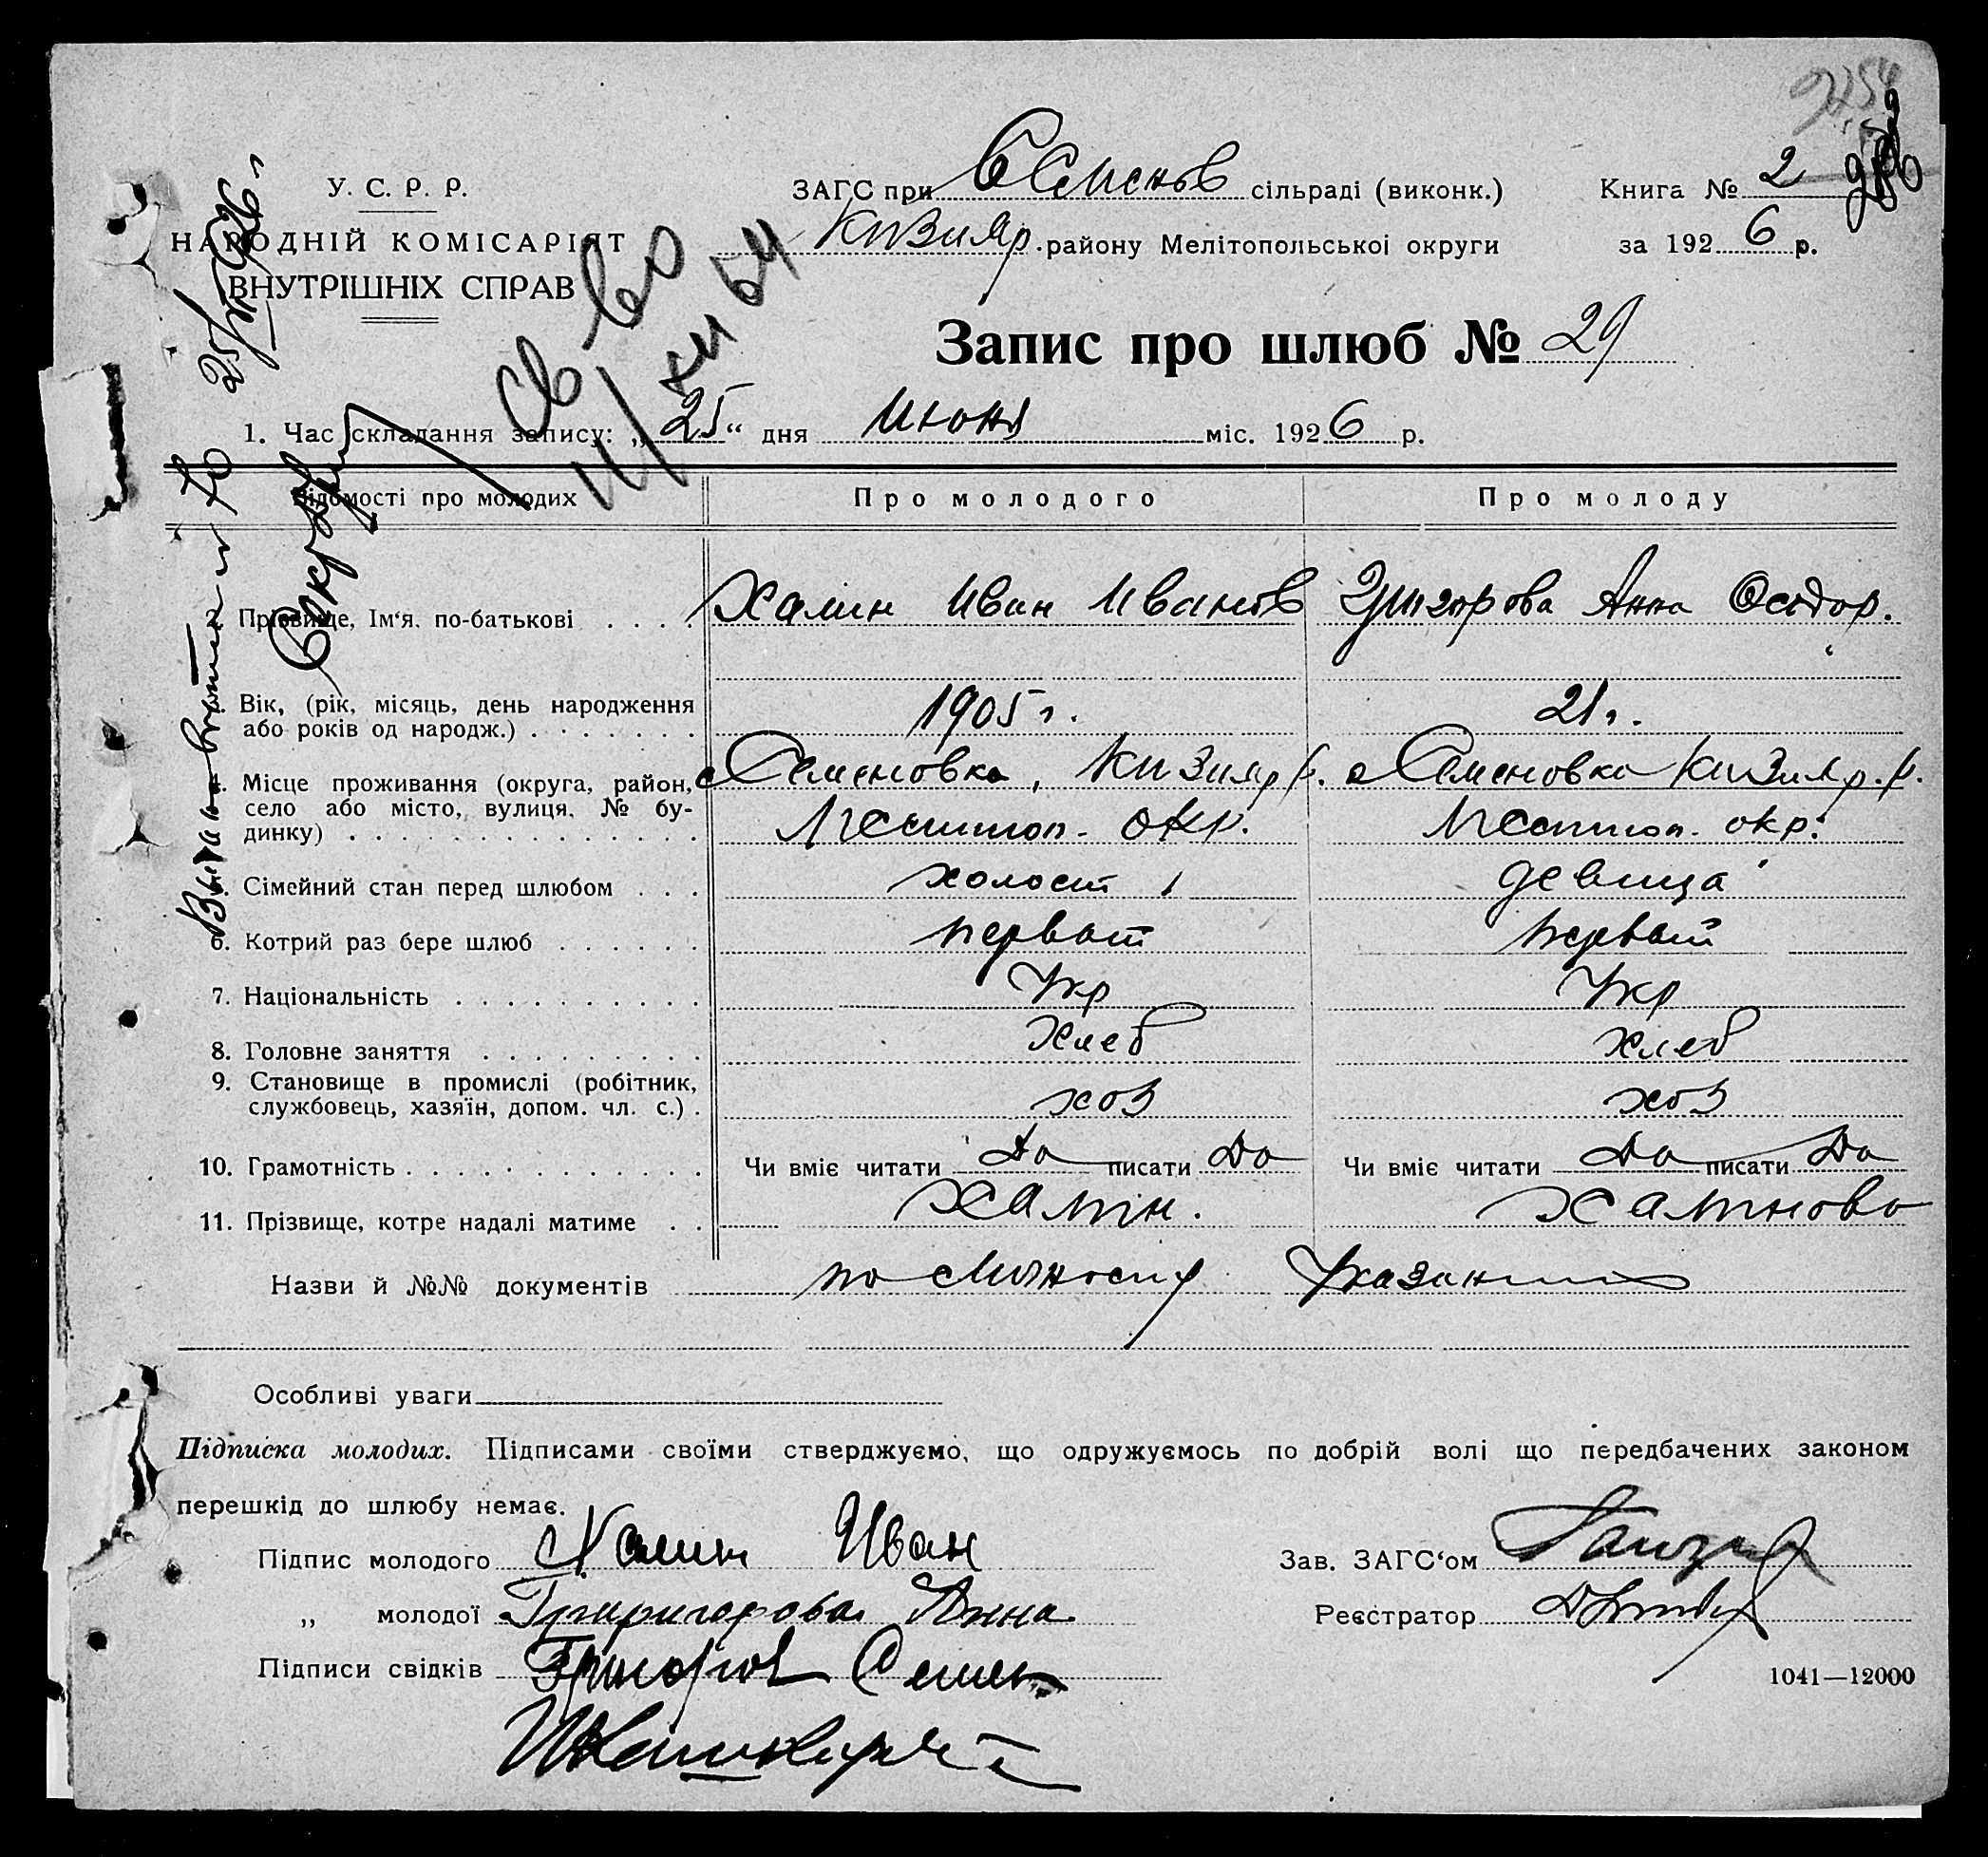 У. С. Р. Р.
НАРОДНІЙ КОМІСАРІЯТ
ВНУТРІШНІХ СПРАВ
ЗАГС при Семенов сільраді (виконк.)
Кизияр. району Мелітопольської округи
Книга № 2
за 1926 р.
Запис про шлюб № 29
1. Час складання запису: „25“ дня Июня міс. 1926 р.
Св-во
11/XII 54
Відомості про молодих Про молодого Про молоду
2. Прізвище, Ім‘я, по-батькові . . . . Халин Иван Иванов Григорова Анна Осидор.
Вік, (рік, місяць, день народження
або років од народж.) . . . . . . . 1905 г. 21 г.
Місце проживання (округа, район, с Семеновка, Кизияр р. с Семеновка Кизияр. р.
село або місто, вулиця, № бу-
динку) . . . . . . . . . . . . . . Мелитоп. окр. Мелитоп. окр.
Сімейний стан перед шлюбом . . . холост девица
6. Котрий раз бере шлюб . . . . . . первый первый
7. Національність . . . . . . . . . . Укр Укр
8. Головне заняття . . . . . . . . . Хлеб Хлеб
9. Становище в промислі (робітник,
службовець, хазяїн, допом. чл. с.) . хоз хоз
10. Грамотність . . . . . . . . . . . . Чи вміє читати Да писати Да Чи вміє читати Да писати Да
11. Прізвище, котре надалі матиме . . Халин. Халинова
Назви й №№ документів по личности
Особливі уваги
Підписка молодих. Підписами своїми стверджуємо, що одружуємось по добрій волі що передбачених законом
перешкід до шлюбу немає.
Підпис молодого Халин Иван
Зав. ЗАГС‘ом
„ молодої Григорова Анна
Реєстратор
Підписи свідків Григоров Семен
1041—12000